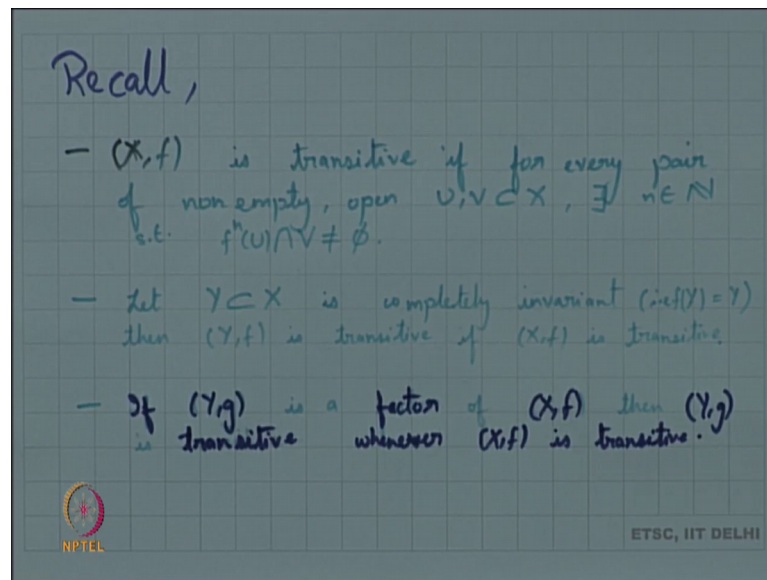 Recall,
- (X,f) is transitive if for every pair
of non empty, open U,V ⊂ X, ∃ n ∈ N
s.t. fⁿ(U)∩V ≠ ∅.
- Let Y ⊂ X is completely invariant (i.e f(Y) = Y)
then (Y,f) is transitive if (X,f) is transitive.
- If (Y,g) is a factor of (X,f) then (Y,g)
is transitive whenever (X,f) is transitive.
NPTEL
ETSC, IIT DELHI